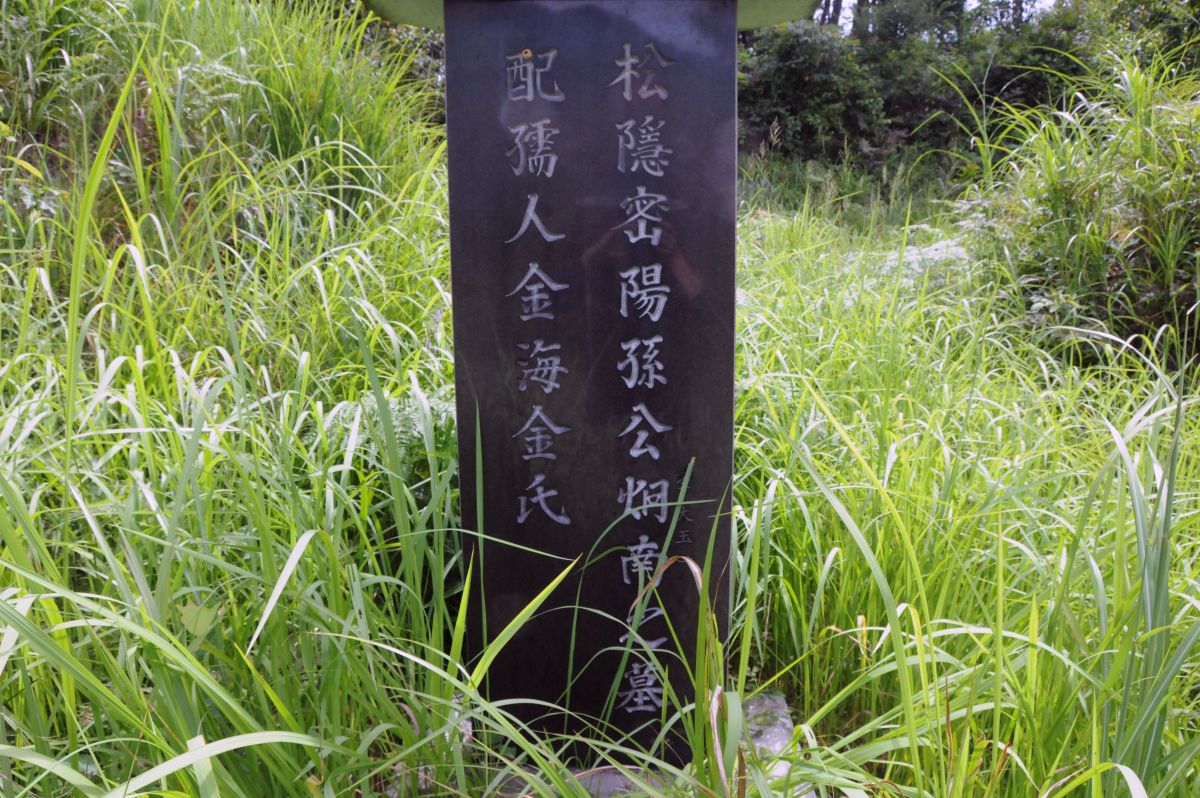 松隱密陽孫公炯南之墓
配孺人金海金氏